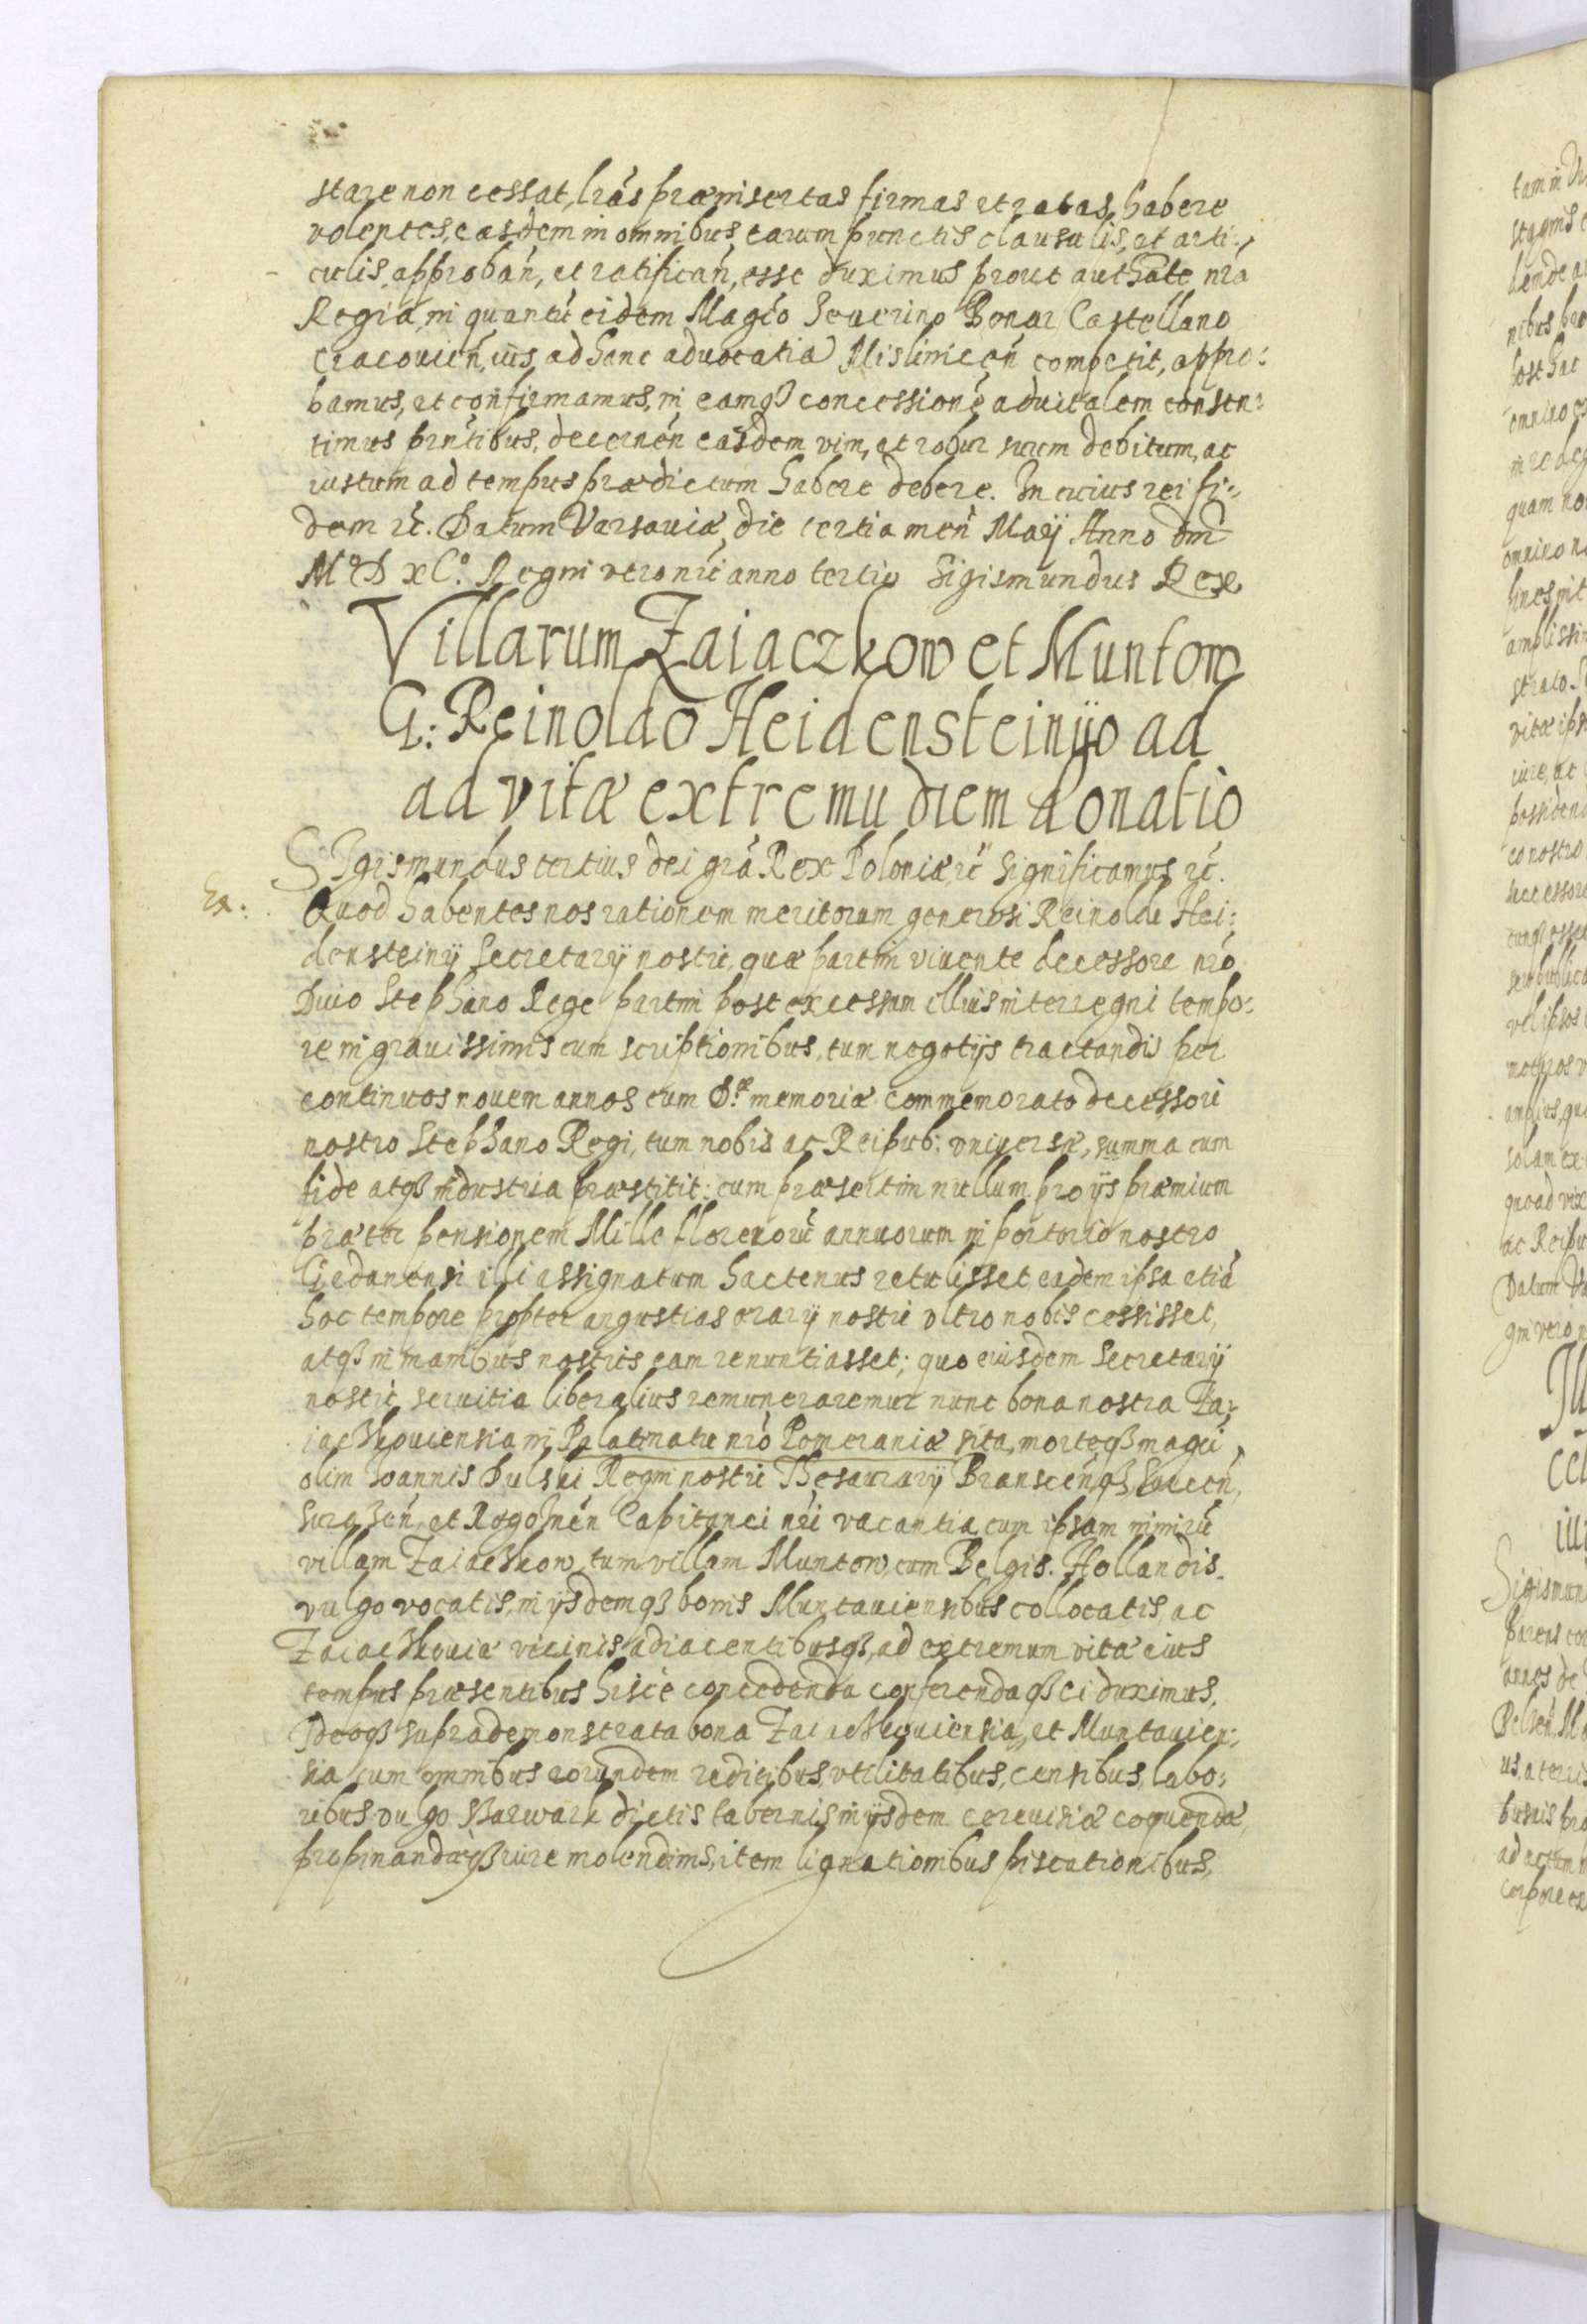 stare non cessat, lrãs præinsertas firmas et ratas habere
volentes, easdem in omnibus earum punctis clausulis, et arti-
culis, approbañ, et ratificañ, esse duximus prout authãte nrã
Regia, in quantũ eidem Magco Seuerino Bonar Castellano
Cracouień, ius ad hanc aduocatiã Mislimiceñ competit, appro-
bamus, et confirmamus, in eamqȝ concessionẽ aduitalem consen-
timus prñtibus, decerneñ easdem vim, et robur suum debitum, ac
iustum ad tempus prædictum habere debere. In cuius rei fi-
dem rc̃. Datum Varsauiæ, die tertia meñ Maij Anno Dni
Mº D xCº. Regni vero nri anno tertio Sigismundus Rex
Villarum Zaiaczkow et Muntow
G: Reinoldo Heidensteinijo ad
ad vitæ extremũ diem donatio
Ex:
SIgismundus tertius dei grã Rex Poloniæ rc̃ significamus rc̃.
Quod habentes nos rationem meritorum generosi Reinoldi Hei-
densteinij Secretarij nostri, quæ partim viuente decessore nrõ
Diuo Stephano Rege partim post excessum illius interregni tempo-
re in grauissimis cum scriptionibus, tum negotijs tractandis per
continuos nouem annos cum D.æ memoriæ commemorato decessori
nostro Stephano Regi, tum nobis ac Reipub: vniuersæ, summa cum
fide atqȝ industria præstitit: cum præsertim nullum pro ijs præmium
præter pensionem Mille florenorũ annuorum in portorio nostro
Gedanensi illi assignatum hactenus retulisset, eadem ipsa etiã
hoc tempore propter angustias ærarij nostri vltro nobis cessisset,
atqȝ in manibus nostris eam renuntiasset; quo eiusdem Secretarij
nostri seruitia liberalius remuneraremur nunc bona nostra Za-
iaczkouiensia in Palatinatu nrõ Pomeraniæ sita, morteqȝ magci
olim Ioannis Dulski Regni nostri Thesaurarij Branseñqȝ Sueceñ,
Suraseñ, et Rogozneñ Capitanei nri vacantia, cum ipsam nimirũ
villam Zaiaczkow, tum villam Muntow, cum Belgis. Hollandis
vulgo vocatis, in ijsdemqȝ bonis Muntauiensibus collocatis, ac
Zaiaczkouiæ vicinis adiacentibusqȝ, ad extremum vitæ eius
tempus præsentibus hisce concedenda conferendaqȝ ei duximus.
Ideoqȝ supra demonstrata bona Zaiaczkouiensia, et Muntauien-
sia cum omnibus eorundem reditibus, vtilitatibus, censibus, labo-
ribus vulgo Szarwark dictis tabernis in ijsdem cereuisiæ coquendæ,
propinandæqȝ iure molendinis, item lignationibus piscationibus,